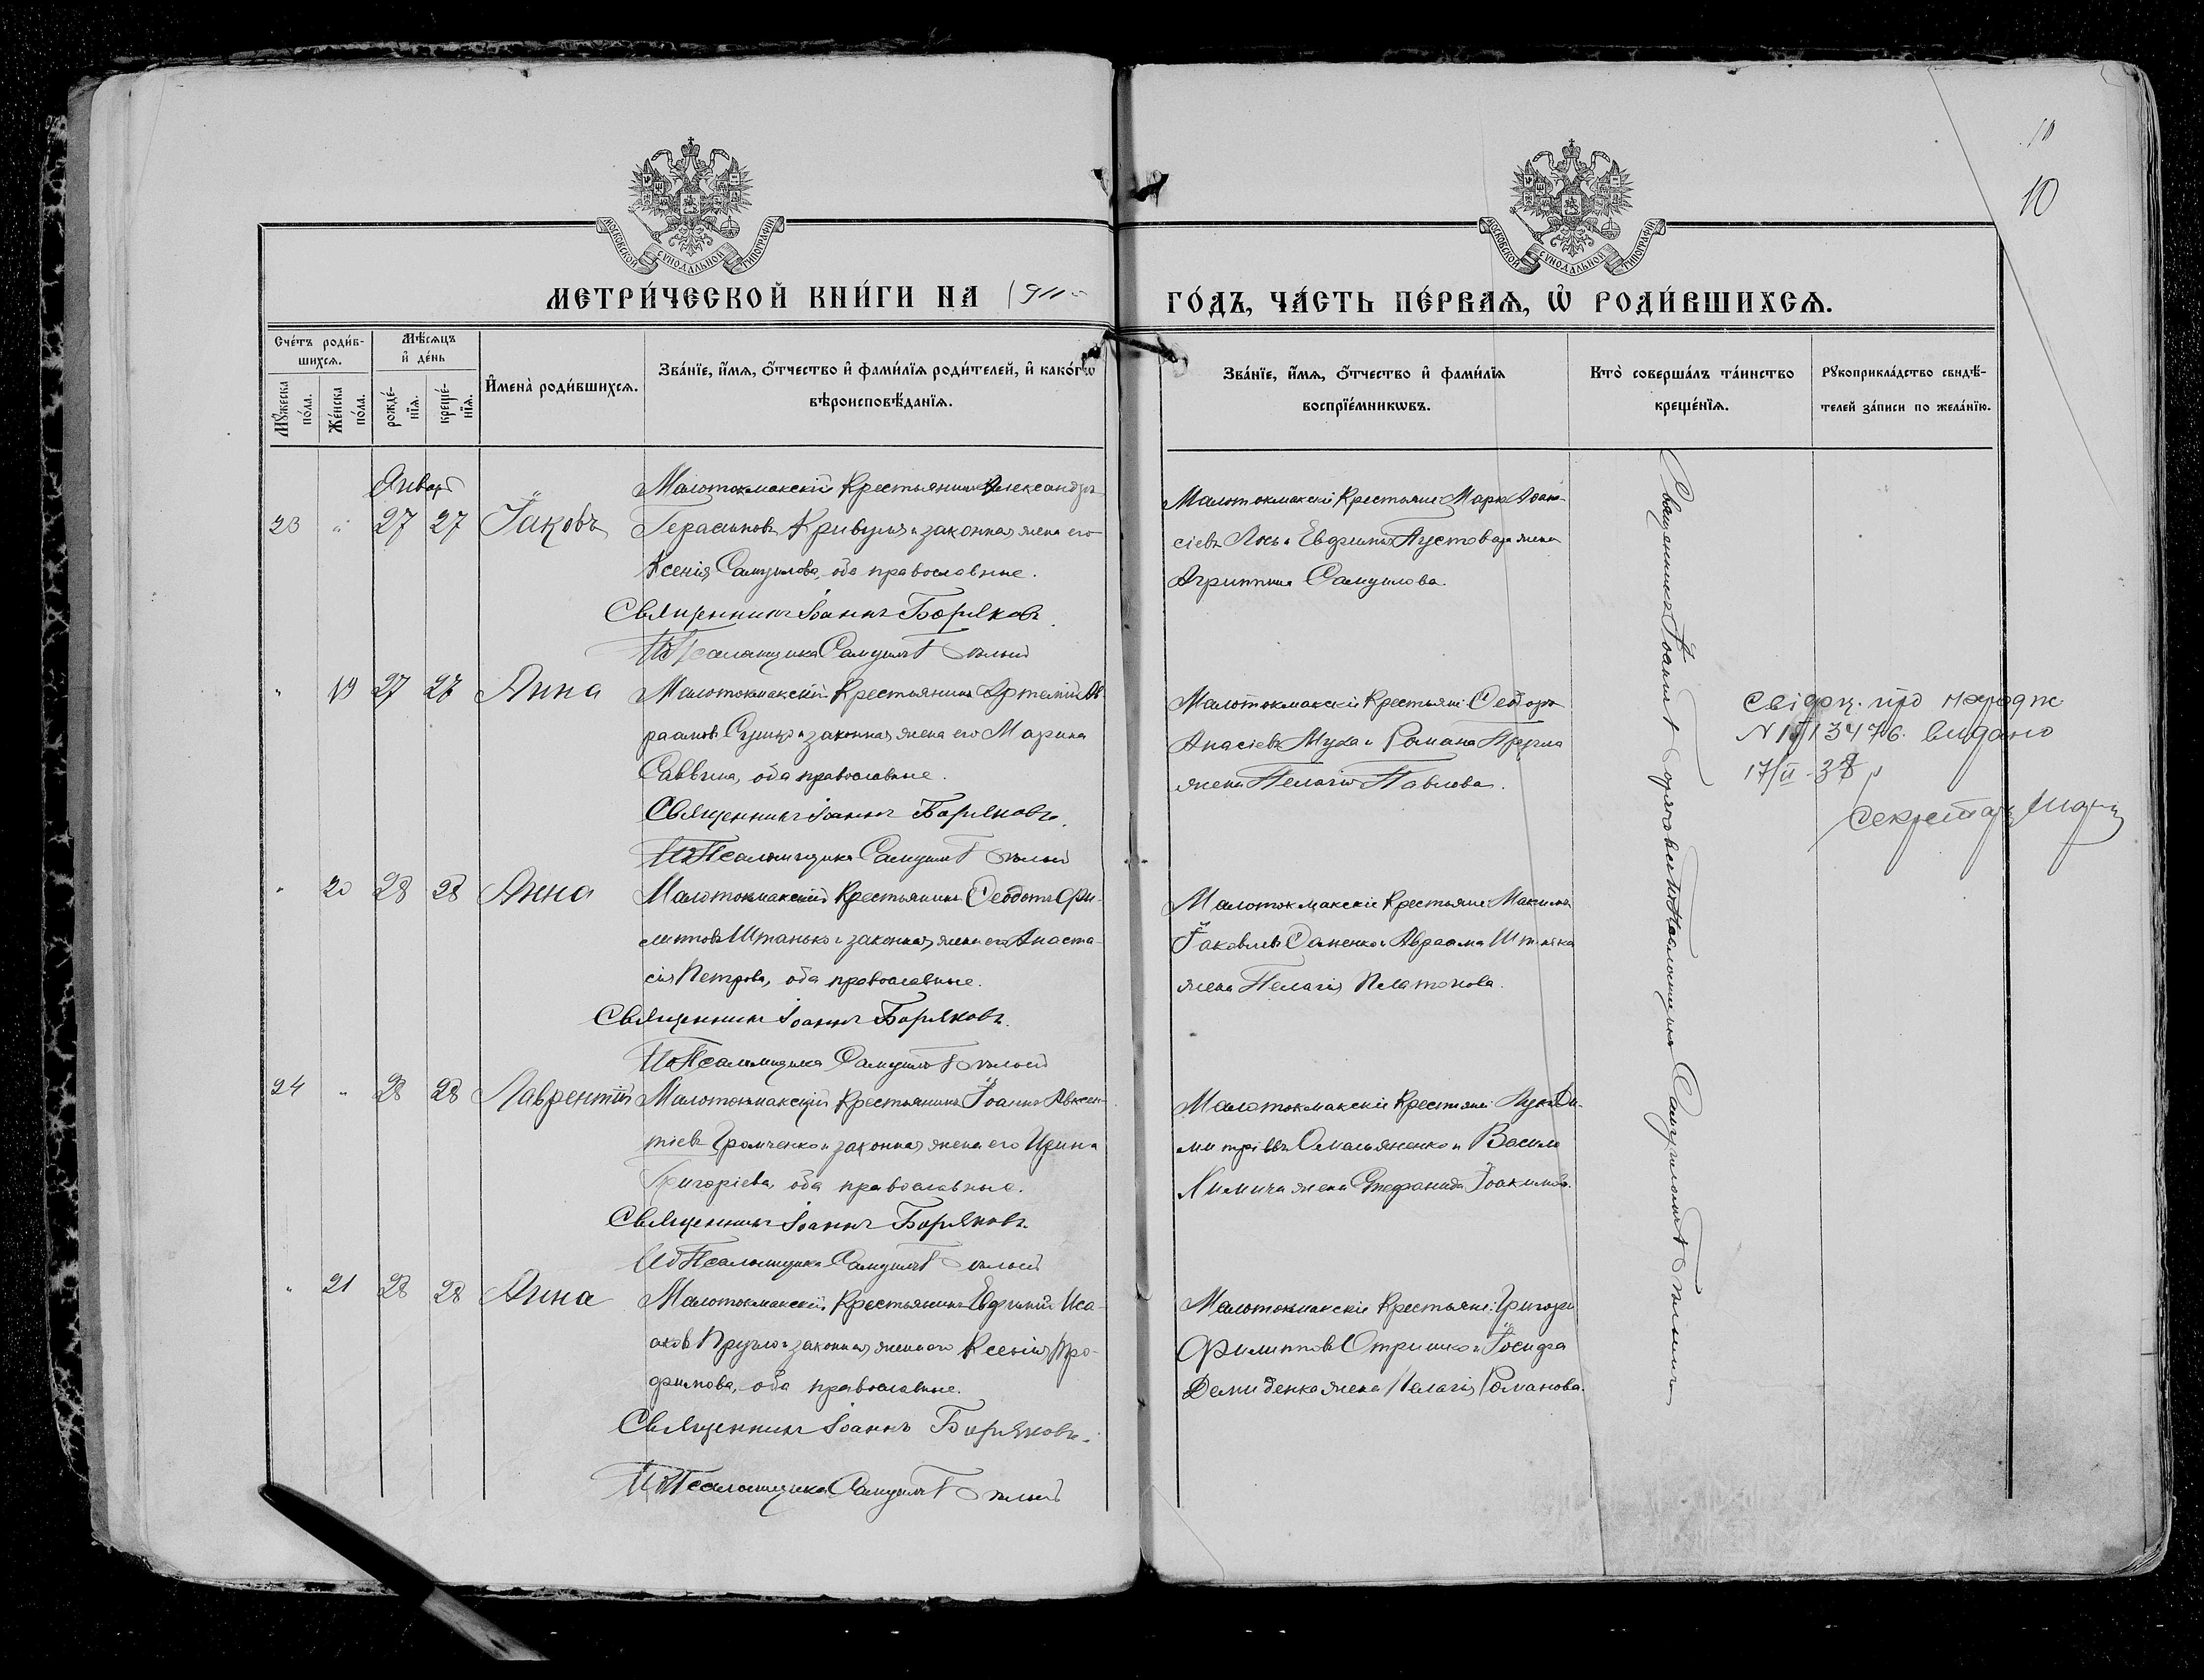 10
10
МОСКОВСКОЙ СѴНОДАЛЬНОЙ ТИПОГРАФІИ
МОСКОВСКОЙ СѴНОДАЛЬНОЙ ТИПОГРАФІИ
МЕТРИ́ЧЕСКОЙ КНИ́ГИ НА 1911
ГО́ДЪ, ЧА́СТЬ ПЕ́РВАѦ, Ѡ҆ РОДИ́ВШИХСѦ.
Сче́тъ роди́в-
шихсѧ.
Мꙋ́жеска по́ла.
Же́нска по́ла.
Мѣ́сѧцъ
и҆ де́нь
рожде́-
нїѧ.
креще́-
нїѧ.
И҆мена̀ роди́вшихсѧ.
Зва́нїе, и҆́мѧ, о҆́тчество и҆ фами́лїѧ роди́телей, и҆ како́гѡ
вѣроисповѣ́данїѧ.
Зва́нїе, и҆́мѧ, о҆́тчество и҆ фами́лїѧ
воспрїе́мникѡвъ.
Кто̀ соверша́лъ та́инство
креще́нїѧ.
Рꙋкоприкла́дство свидѣ́-
телей за́писи по жела́нїю.
Январ
Малотокмакскій Крестьянинъ Александръ
23 " 27 27 Іаковъ Герасимовъ Кривуля и законная жена его
Ксенія Самуилова, оба православные.
Священникъ Іоаннъ Боряковъ.
Псаломщика Самуилъ
Малотокмакскіе Крестьяне: Маркъ Афана-
сіевъ Лось и Евфимія Пустовара жена
Агриппина Самуилова.
" 19 27 27 Анна Малотокмакскій Крестьянинъ Артемій Ав-
раамовъ и законная жена его Марина
Саввина, оба православные.
Священникъ Іоаннъ Боряковъ.
Псаломщика Самуилъ
Малотокмакскіе Крестьяне: Ѳеодоръ
Муха и Романа Пругла
жена Пелагія Павлова.
Свідоц. про народж
N 13476. видано
17/II-38 р
Секретар
" 20 28 28 Анна Малотокмакскій Крестьянинъ Ѳеодотъ Фи-
липповъ Штанько и законная жена его Анаста-
сія Петрова, оба православные.
Священникъ Іоаннъ Боряковъ.
Псаломщика Самуилъ
Малотокмакскіе Крестьяне: Максимъ
Іаковлевъ и Авраама
жена Пелагія Платонова.
24 " 28 28 Лаврентій Малотокмакскій Крестьянинъ Іоаннъ Авксен-
тіевъ Громченко и законная жена его Ирина
Григоріева, оба православные.
Священникъ Іоаннъ Боряковъ.
Псаломщика Самуилъ
Малотокмакскіе Крестьяне: Лука Ди-
митріевъ Омельяненко и Василя
Химича жена Стефанида Іоакимова.
" 21 28 28 Анна Малотокмакскій Крестьянинъ Евфимій Иса-
аковъ Пругло и законная жена его Ксенія Тро-
фимова, оба православные.
Священникъ Іоаннъ Боряковъ.
Псаломщика Самуилъ
Малотокмакскіе Крестьяне: Григорій
Филипповъ Отришко и Іосифа
Демиденка жена Пелагія Романова.
Священникъ Іоаннъ Боряковъ